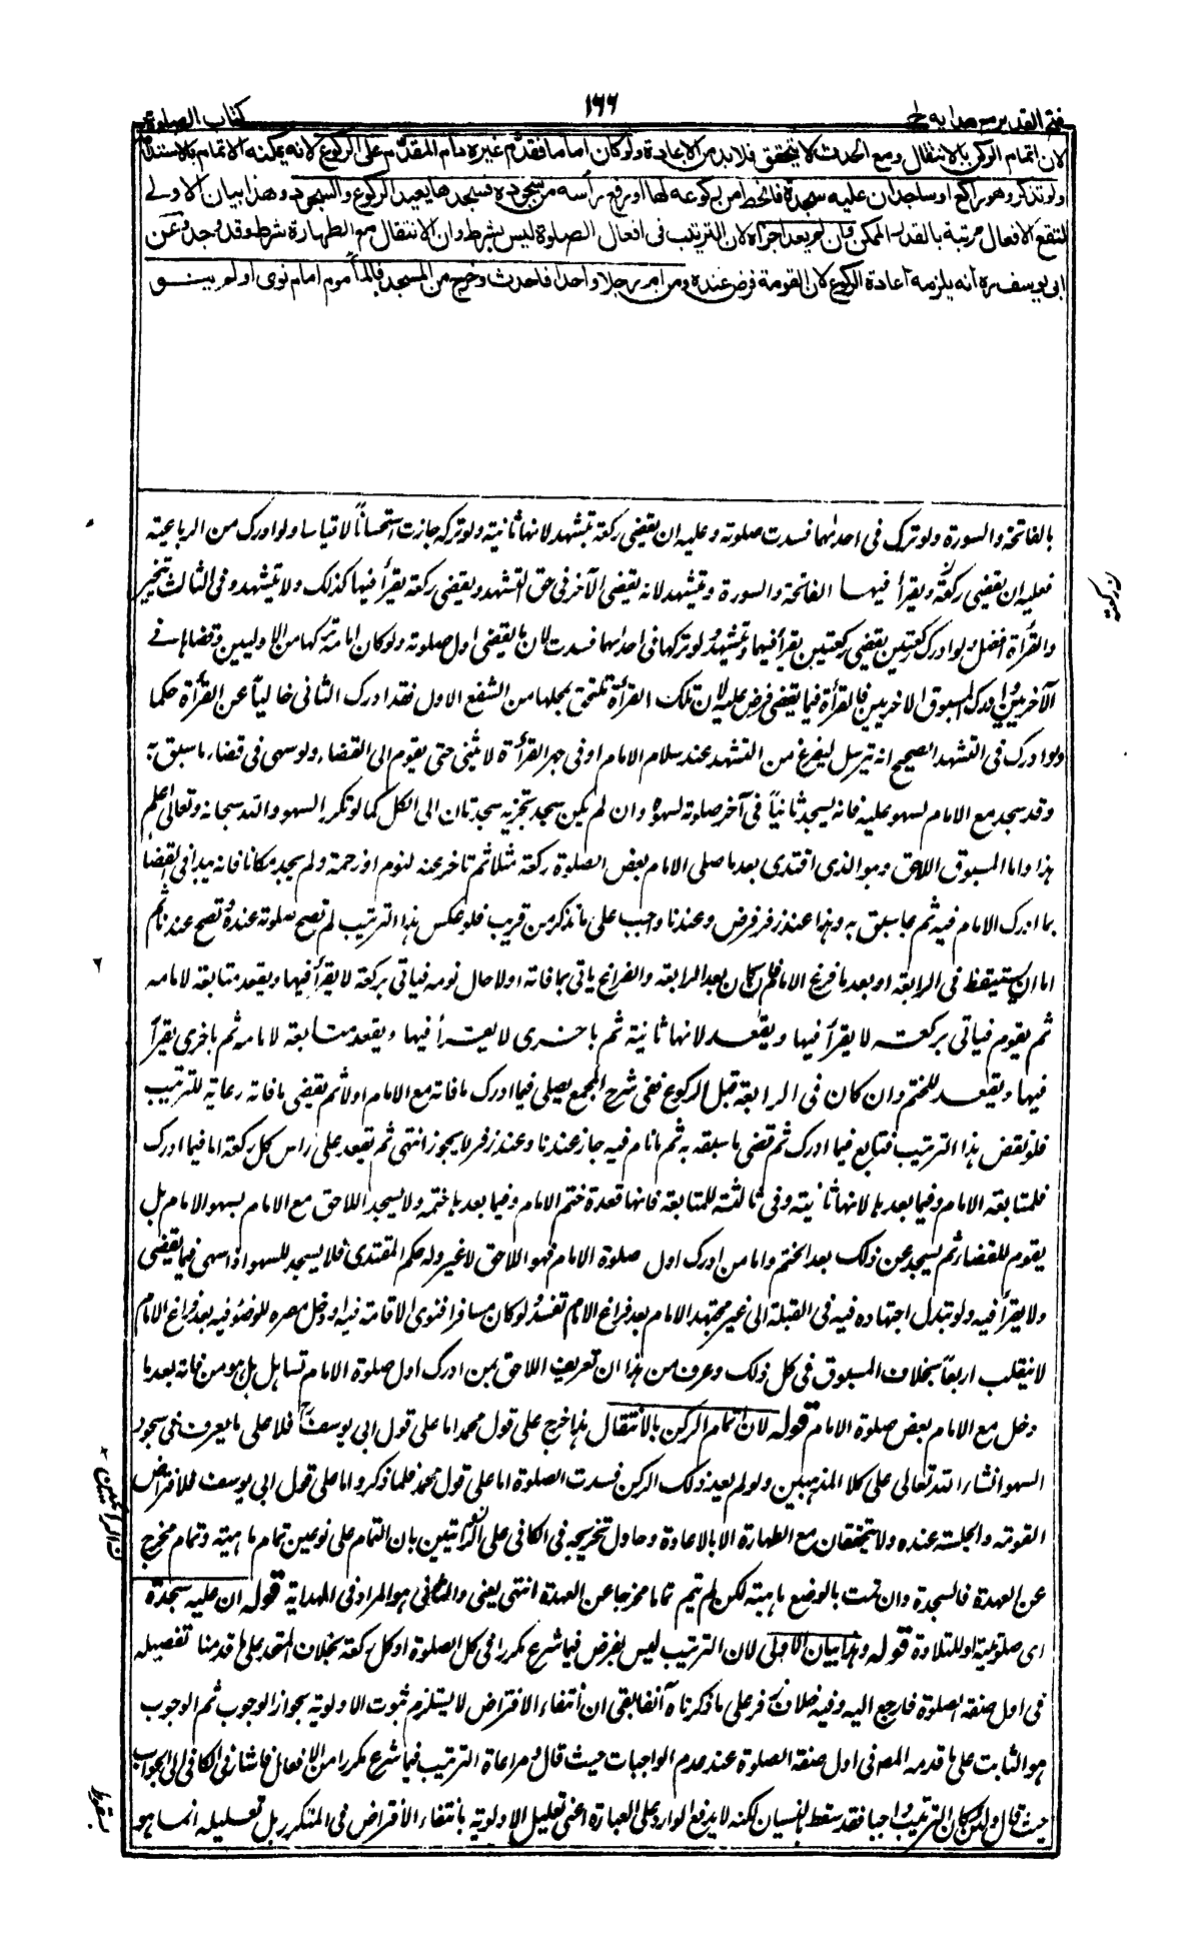 فتح القدير مع هدايه ج ١
١٦٦
كتاب الصلوة
لان اتمام الركن بالانتقال ومع الحدث لا يتحقق فلابد من الاعادة ولو كان اماما فقدم غيره دام المقدم على الركوع لانه يمكنه الاتمام بالاستدامة
ولو تذكر وهو راكع او ساجد ان عليه سجدة فانحط من ركوعه لها او رفع رأسه من سجوده فسجدها يعيد الركوع والسجود وهذا بيان الاولى
لتقع الافعال مرتبة بالقدر الممكن وان لم يعد اجزاه لان الترتيب فى افعال الصلوة ليس بشرط وان الانتقال مع الطهارة شرط وقد وجد وعن
ابى يوسف ره انه يلزمه اعادة الركوع لان القومة فرض عنده ومن ام رجلا واحدا فاحدث وخرج من المسجد فالمأموم امام نوى او لم ينو
بالفاتحة والسورة ولو ترك فى احدٰهما فسدت صلوته وعليه ان يقضى ركعة بتشهد لانها ثانية ولو تركه جازت استحساناً لا قياسا ولو ادرك من الرباعية
فعليه ان يقضى ركعة ويقرأ فيها الفاتحة والسورة ويتشهد لانه يقضى الآخر فى حق التشهد ويقضى ركعة يقرأ فيها كذلك ولا يتشهد وفى الثالث يتخير
والقرأة افضل ولو ادرك ركعتين يقضى ركعتين يقرأ فيهما ويتشهد ولو تركها فى احدٰهما فسدت لان ما يقضى اول صلوته ولو كان امامه تركها من الاوليين وقضاها فى
الآخريين وادرك المسبوق الاخريين فالقرأة فيما يقضى فرض عليه لان تلك القرأة تلتحق بمحلها من الشفع الاول فقد ادرك الثانى خالياً عن القرأة حكما
ولو ادرك فى التشهد الصحيح انه يترسل ليفرغ من التشهد عند سلام الامام او فى جهر القرأة لا يثنى حتى يقوم الى القضاء ولو سهى فى قضاء ما سبق به
وقد سجد مع الامام لسهو عليه فانه يسجد ثانياً فى آخر صلوته لسهوه وان لم يكن سجد تجزيه سجدتان الى الكل كما لو تكرر السهو والله سبحانه وتعالى اعلم
هذا واما المسبوق اللاحق وهو الذى اقتدى بعد ما صلى الامام بعض الصلوة ركعة مثلا ثم تاخر عنه لنوم او زحمة ولم يجد مكانا فانه يبدأ فى القضأ
بما ادرك الامام فيه ثم بما سبق به وهذا عند زفر فرض وعندنا واجب على ما نذكر من قريب فلو عكس هذا الترتيب لم تصح صلوته عنده وتصح عندنا ثم
اما ان يستيقظ فى الرابعة او بعد ما فرغ الامام فان كان بعد الرابعة والفراغ ياتى بما فاته اولا حال نومه فياتى بركعة لا يقرأ فيها ويقعد متابعة لامامه
ثم يقوم فياتى بركعة لا يقرأ فيها ويقعد لانها ثانية ثم باخرى لا يقرأ فيها ويقعد متابعة لامامه ثم باخرى يقرأ
فيها ويقعد للختم وان كان فى الرابعة قبل الركوع ففى شرح المجمع يصلى فيما ادرك ما فاته مع الامام اولا ثم يقضى ما فاته رعاية للترتيب
فلو نقض هذا الترتيب فتابع فيما ادرك ثم قضى ما سبقه به ثم ما نام فيه جاز عندنا وعند زفر لا يجوز انتهى ثم يقعد على راس كل ركعة اما فيما ادرك
فلمتابعة الامام وفيما بعدها لانها ثانيته وفى ثالثته للمتابعة فانها قعدة ختم الامام وفيما بعدها ختمه ولا يسجد اللاحق مع الامام بسهو الامام بل
يقوم للقضاء ثم يسجد عن ذلك بعد الختم واما من ادرك اول صلوة الامام فهو اللاحق لا غير وله حكم المقتدى فلا يسجد للسهو اذا سهى فيما يقضى
ولا يقرأ فيه ولو تبدل اجتهاده فيه فى القبلة الى غير مجتهد الامام بعد فراغ الامام تفسد ولو كان مسافرا فنوى الاقامة فيه او دخل مصره للوضوء فيه بعد فراغ الامام
لا ينقلب اربعاً بخلاف المسبوق فى كل ذلك وعرف من هذا ان تعريف اللاحق بمن ادرك اول صلوة الامام تساهل بل هو من فاته بعد ما
دخل مع الامام بعض صلوة الامام قوله لان اتمام الركن بالانتقال هذا خرج على قول محمد اما على قول ابى يوسف فلا على ما يعرف فى سجود
السهو انشاء الله تعالى على كلا المذهبين ولو لم يعد ذلك الركن فسدت الصلوة اما على قول محمد فلما ذكر واما على قول ابى يوسف فلافتراض
القومة والجلسة عنده ولا يتحققان مع الطهارة الا بالاعادة وحاول تخريجه فى الكافى على الرأيين بان التمام على نوعين تمام ماهية وتمام مخرج
عن العهدة فالسجدة وان تمت بالوضع ماهية لكن لم تتم تماما مخرجا عن العهدة انتهى يعنى والثانى هو المراد فى الهداية قوله ان عليه سجدة
اى صلوتية او للتلاوة قوله وهذا بيان الاولى لان الترتيب ليس بفرض فيما شرع مكررا فى كل الصلوة او كل ركعة بخلاف المتحد على ما قدمنا تفصيله
فى اول صفة الصلوة فارجع اليه وفيه خلاف زفر على ما ذكرناه آنفا بقى ان انتفاء الافتراض لا يستلزم ثبوت الاولوية بجواز الوجوب ثم الوجوب
هو الثابت على ما قدمه المصـ فى اول صفة الصلوة عند عدم الواجبات حيث قال ومراعاة الترتيب فيما شرع مكررا من الافعال فاشار فى الكافى الى الجواب
حيث قال ولئن كان الترتيب واجبا فقد سقط بالنسيان لكنه لا يدفع الوارد على العبارة اعنى تعليل الاولوية بانتفاء الافتراض فى المتكرر بل تعليله انما هو